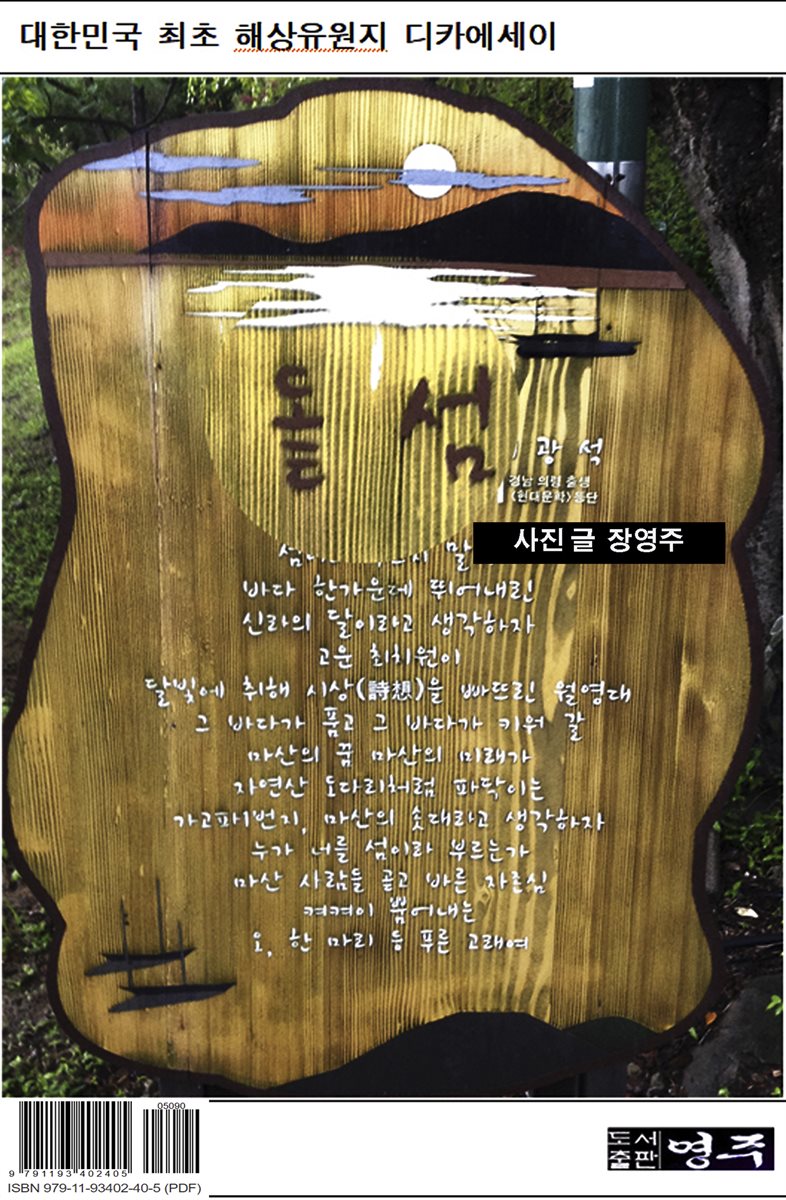 대한민국 최초 해상유원지 디카에세이
섬
광석
경남 의령 출생
<현대문학> 등단
사진 글 장영주
말
바다 한가운데 뛰어내린
신라의 달이라고 생각하자
고운 최치원이
달빛에 취해 시상(詩想)을 빠뜨린 월영대
그 바다가 품고 그 바다가 키워 갈
마산의 꿈 마산의 미래가
자연산 도다리처럼 파닥이는
가고파1번지, 마산의 솟대라고 생각하자
누가 너를 섬이라 부르는가
마산 사람들 곧고 바른 자존심
켜켜이 뿜어내는
오, 한 마리 등 푸른 고래여
05090
9 791193 402405
ISBN 979-11-93402-40-5 (PDF)
도서
출판
영주